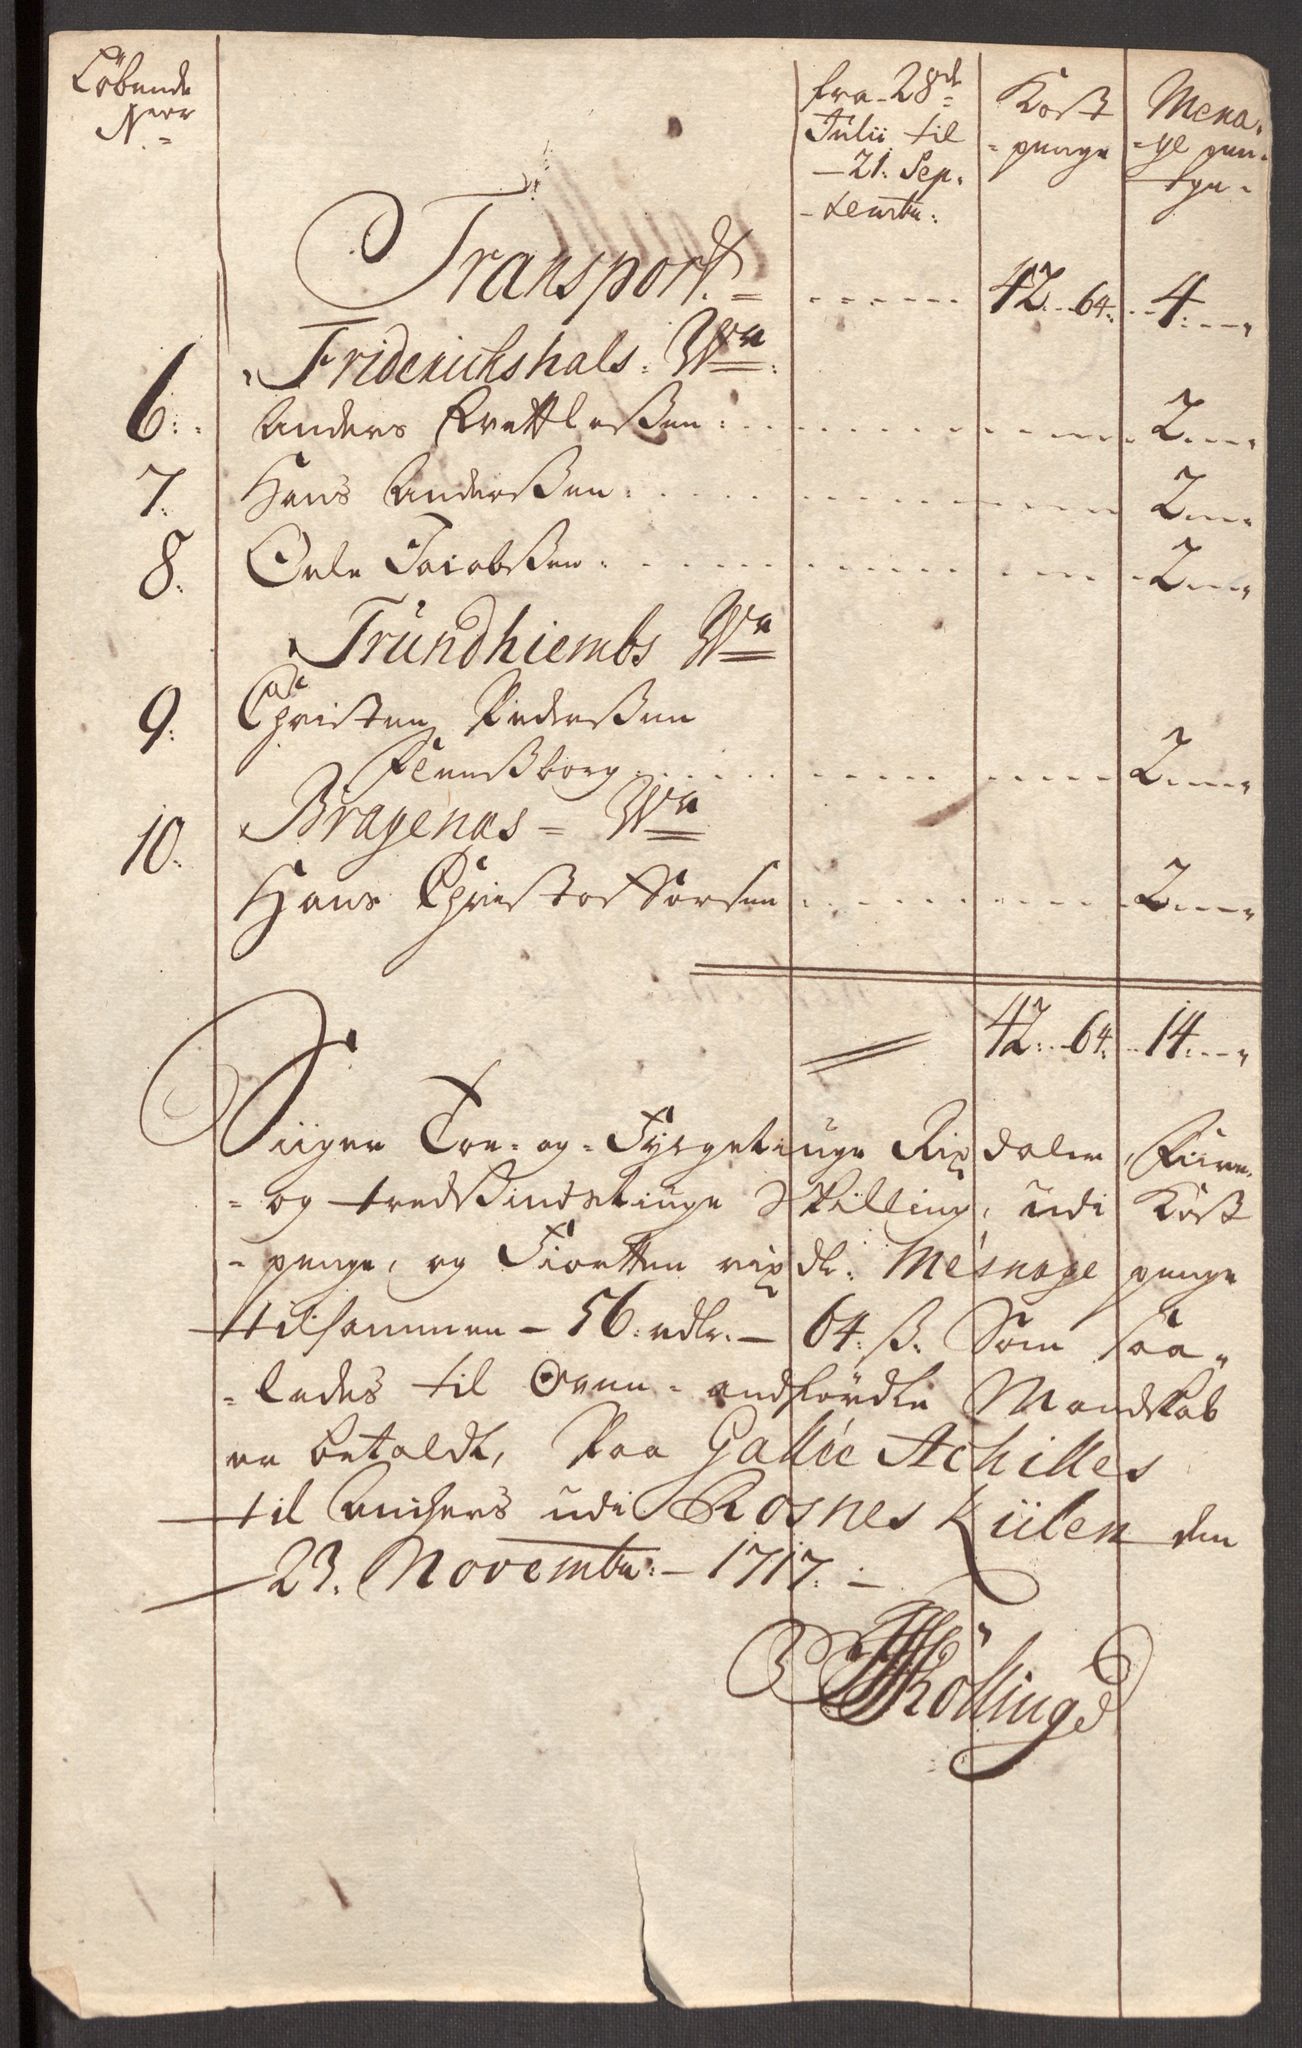 Löbende
Nerr
fra 28de
Julii til
21. Sep-
tembr:
Kost
penge
Mena-
ge pen-
ge
Transport 42: 64: 4:
Friderichshals Wn
6: Anders 2
7. Hans Anderßen 2
8. Oele Jacobßen 2
Trundhiembs Wn
9. Christen Pederßen
Flensborg 2
Bragenas Wn
10. Hans Christoffersen 2
42: 64: 14:
Siiger Toe- og Fyrgetiuge Rixdaler, Fiire-
og tredsindstiuge Skilling, udi Kost
penge, og Fiortten rixdr: Mesnage penge
tilsammen 56: rdlr. 64: ß. Som saa-
ledes til Oven- andfördte Mandskab
er betaldt, Paa Gallie Achilles
til Anchers udi Rosnes Kiilen den
23. Novembr: 1717.
Kölling